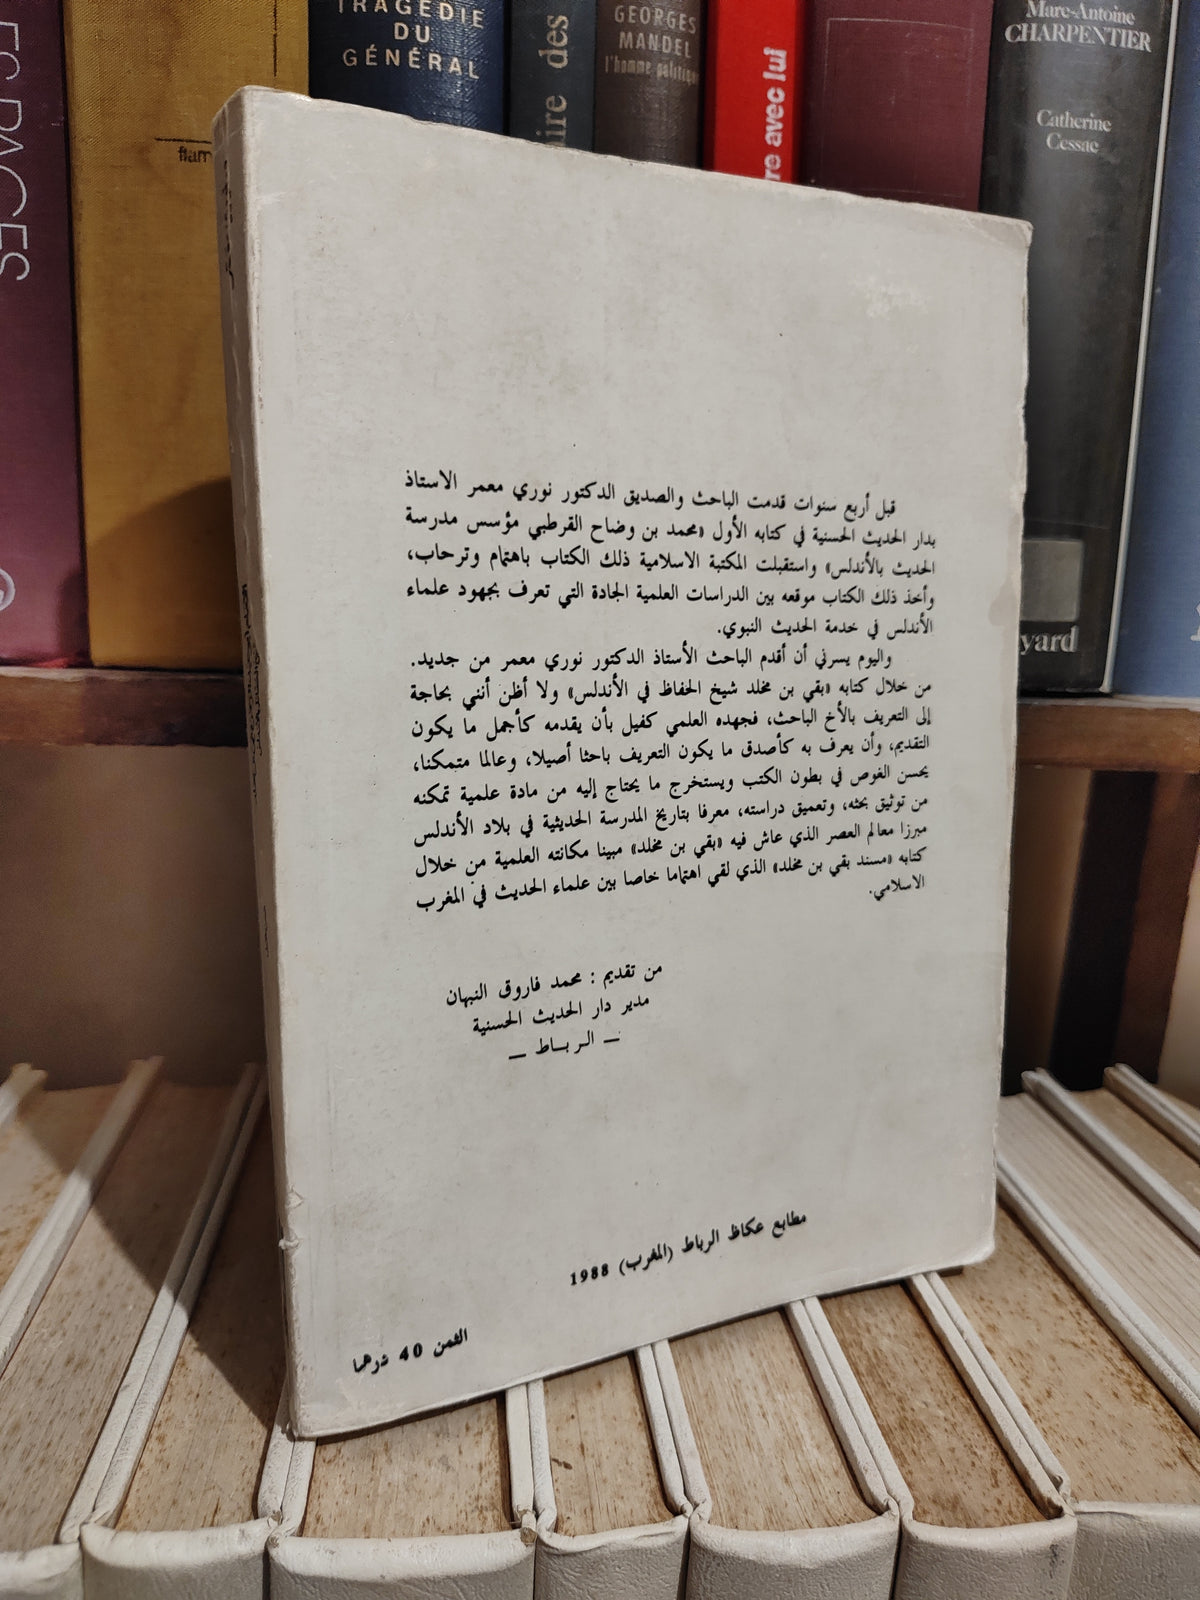 TRAGÉDIE
DU
GÉNÉRAL
ire des
GEORGES
MANDEL
l'homme politique
re avec lui
Marc-Antoine
CHARPENTIER
Catherine
Cessac
yard
ESPACES
flam
قبل أربع سنوات قدمت الباحث والصديق الدكتور نوري معمر الاستاذ
بدار الحديث الحسنية في كتابه الأول «محمد بن وضاح القرطبي مؤسس مدرسة
الحديث بالأندلس» واستقبلت المكتبة الاسلامية ذلك الكتاب باهتمام وترحاب،
وأخذ ذلك الكتاب موقعه بين الدراسات العلمية الجادة التي تعرف بجهود علماء
الأندلس في خدمة الحديث النبوي.
واليوم يسرني أن أقدم الباحث الأستاذ الدكتور نوري معمر من جديد.
من خلال كتابه «بقي بن مخلد شيخ الحفاظ في الأندلس» ولا أظن أنني بحاجة
إلى التعريف بالأخ الباحث، فجهده العلمي كفيل بأن يقدمه كأجمل ما يكون
التقديم، وأن يعرف به كأصدق ما يكون التعريف باحثا أصيلا، وعالما متمكنا،
يحسن الغوص في بطون الكتب ويستخرج ما يحتاج إليه من مادة علمية تمكنه
من توثيق بحثه، وتعميق دراسته، معرفا بتاريخ المدرسة الحديثية في بلاد الأندلس
مبرزا معالم العصر الذي عاش فيه «بقي بن مخلد» مبينا مكانته العلمية من خلال
كتابه «مسند بقي بن مخلد» الذي لقي اهتماما خاصا بين علماء الحديث في المغرب
الاسلامي.
من تقديم : محمد فاروق النبهان
مدير دار الحديث الحسنية
— الرباط —
مطابع عكاظ الرباط (المغرب) 1988
الثمن 40 درهما